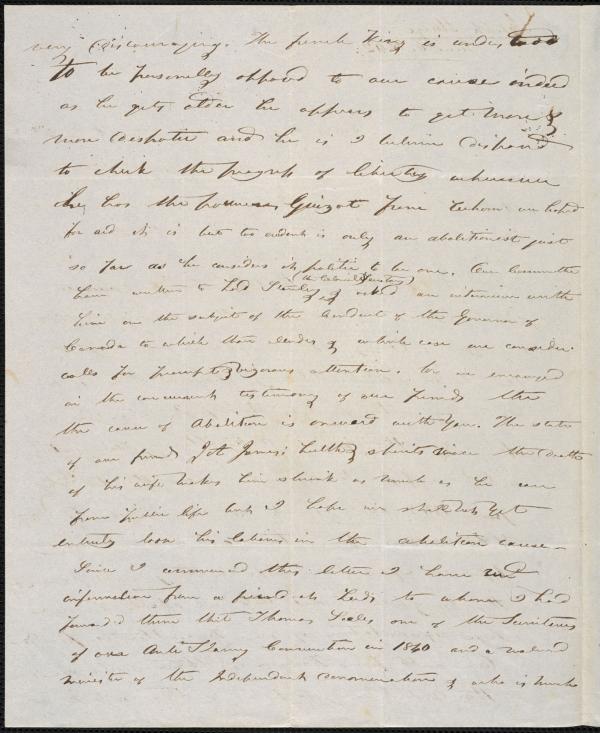 very discouraging. The french King is understood
to be personally opposed to our cause indeed
as he gets older he appears to get more &
more despotic and he is I believe disposed
to check the progress of liberty whenever
he has the power. Guizot from whom we hoped
for aid it is but too evident is only an abolitionist just
so far as he considers it politic to be one. Our Committee
have written to Lord Stanley (the Colonial Secretary) & asked an interview with
him on the subject of the conduct of the Governor of
Canada to which thou alludes & which case we consider
calls for prompt & vigorous attention. We are encouraged
in the concurrent testimony of our friends that
the cause of Abolition is onward with you. The state
of our friend J. H. James's health & spirits since the death
of his wife makes him shrink as much as he can
from public life but I hope we shall not yet
entirely lose his labours in the abolition cause –
Since I commenced this letter I have recd
information from a friend at Leeds to whom I had
forwarded thine that Thomas Scales one of the Secretaries
of our Anti Slavery Convention in 1840 and a valued
minister of the Independent denomination & who is much